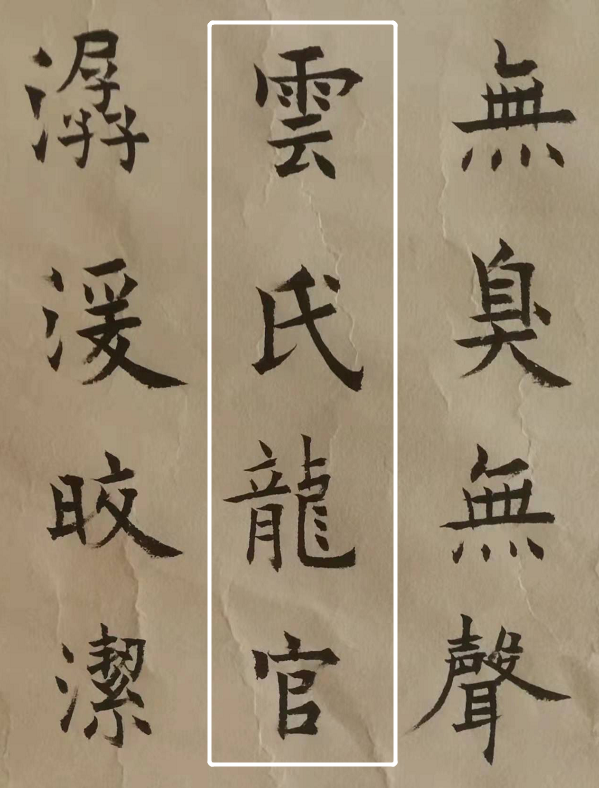 無臭無聲
雲氏龍官
潺湲晈潔